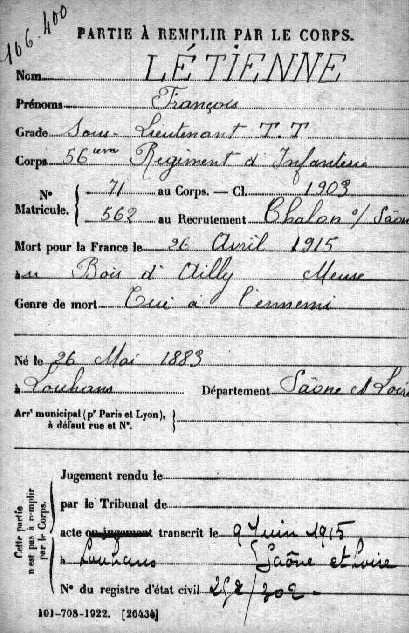 106.400
PARTIE À REMPLIR PAR LE CORPS.
Nom LÉTIENNE
Prénoms François
Grade Sous-Lieutenant T.T
Corps 56ième Régiment d'Infanterie
N° Matricule. { 71 au Corps. — Cl. 1903
562 au Recrutement Chalon s/ Saône
Mort pour la France le 26 Avril 1915
à au Bois d'Ailly Meuse
Genre de mort Tué à l'ennemi
Né le 26 Mai 1883
à Louhans Département Saône et Loire
Arrt municipal (pr Paris et Lyon), à défaut rue et N°. }
Cette partie n'est pas à remplir par le Corps.
Jugement rendu le
par le Tribunal de
acte ou jugement transcrit le 9 Juin 1915
à Louhans Saône et Loire
N° du registre d'état civil
101-708-1922. [26434]